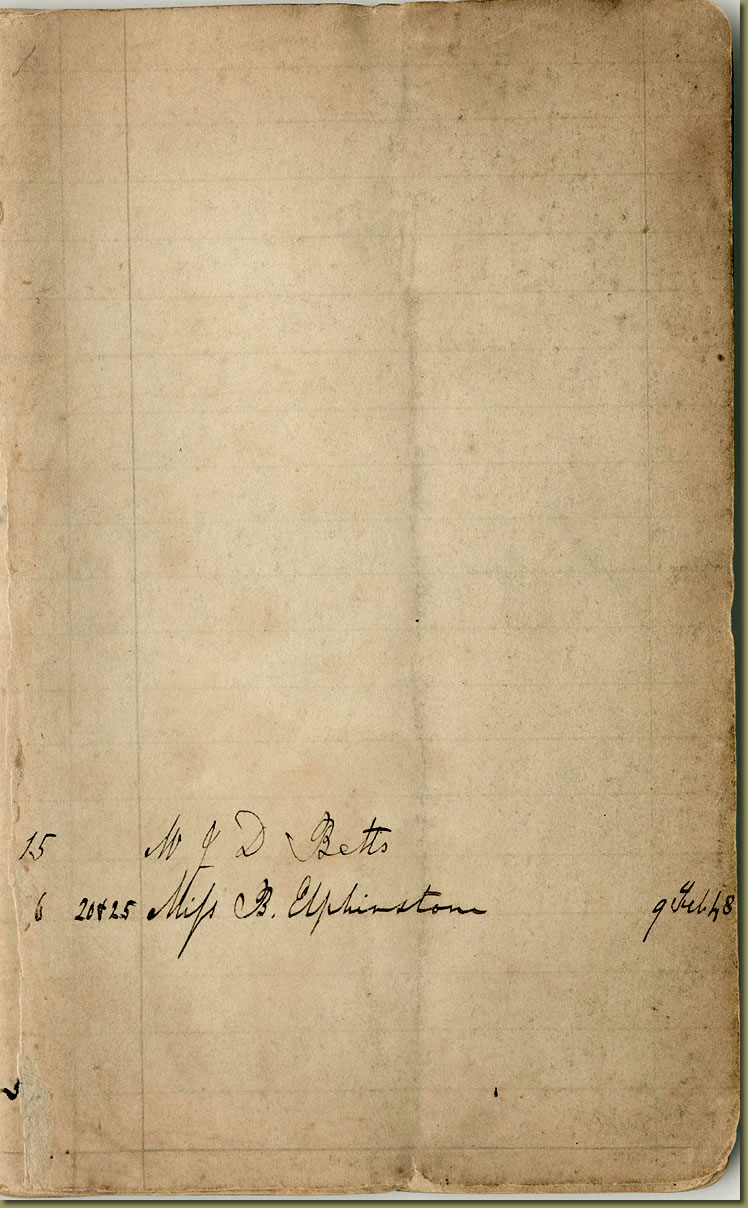 15 Mr J D Betts
6 20&25 Miss B. Elphinstone 9 Feb 48